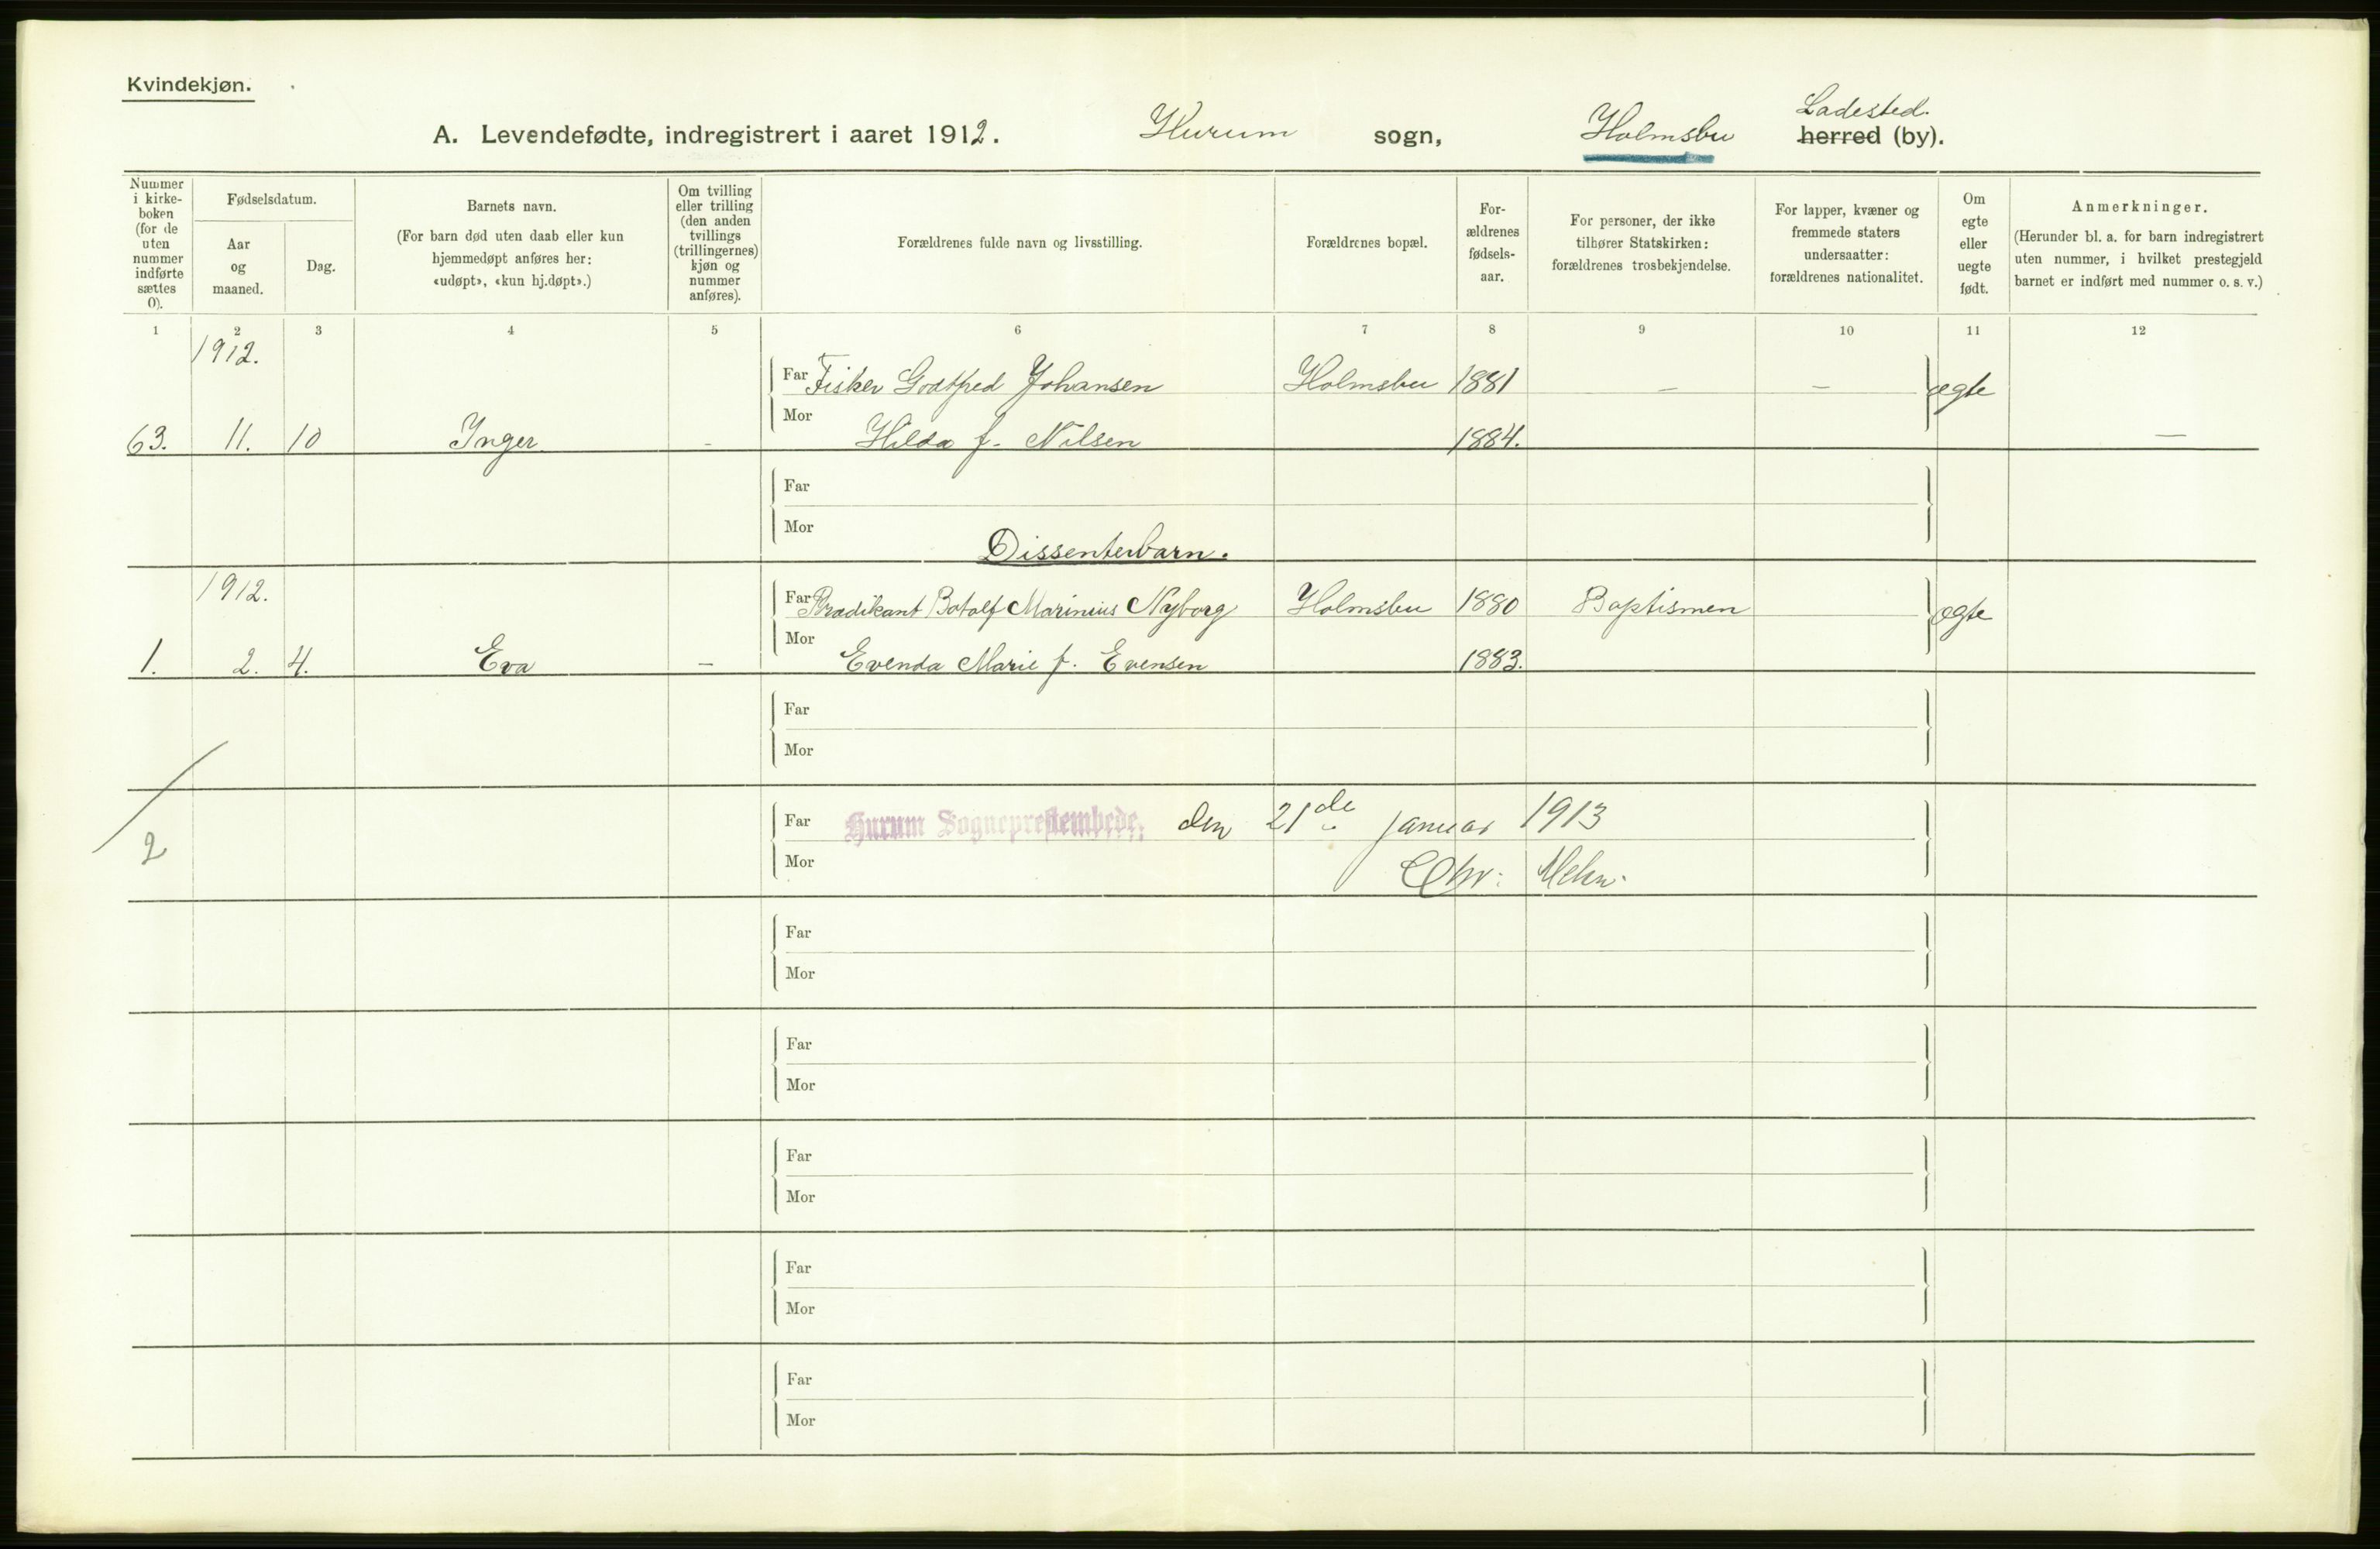 Kvindekjøn.
Ladested.
A. Levendefødte, indregistrert i aaret 1912. Hurum sogn, Holmsbu herred (by).
Nummer i kirkeboken (for de uten nummer indførte sættes 0).
Fødselsdatum.
Aar og maaned.
Dag.
Barnets navn.
(For barn død uten daab eller kun
hjemmedøpt anføres her:
«udøpt», «kun hj.døpt».)
Om tvilling
eller trilling
(den anden
tvillings
(trillingernes)
kjøn og
nummer
anføres).
Forældrenes fulde navn og livsstilling.
Forældrenes bopæl.
For-
ældrenes
fødsels-
aar.
For personer, der ikke
tilhører Statskirken:
forældrenes trosbekjendelse.
For lapper, kvæner og
fremmede staters
undersaatter:
forældrenes nationalitet.
Om
egte
eller
uegte
født.
Anmerkninger.
(Herunder bl. a. for barn indregistrert
uten nummer, i hvilket prestegjeld
barnet er indført med nummer o. s. v.)
1 2 3 4 5 6 7 8 9 10 11 12
1912.
Far Fisker Godtfred Johansen Holmsbu 1881 – – egte
Mor
63. 11. 10 Inger – Hilda f. Nilsen 1884. –
Far
Mor
Dissenterbarn.
1912.
Far Prædikant Botolf Marinius Nyborg Holmsbu 1880 Baptismen egte
Mor
1. 2. 4. Eva – Evenda Marie f. Evensen 1883.
Far
Mor
Far Hurum Sogneprestembede, den 21de januar 1913
2
Mor Chr:
Far
Mor
Far
Mor
Far
Mor
Far
Mor
Far
Mor